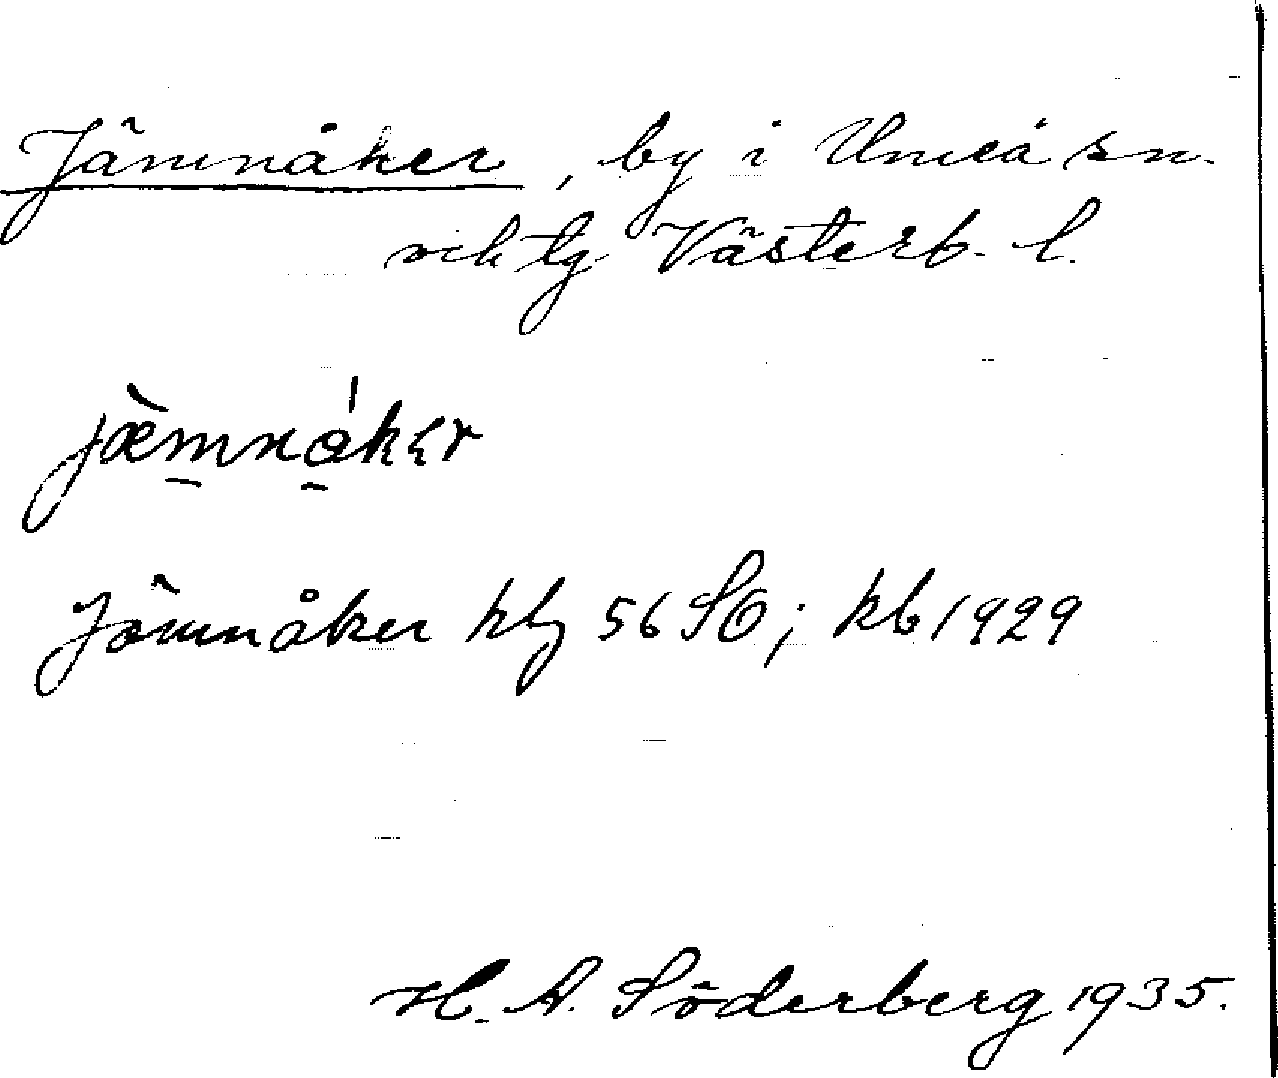 Jämnåker, by i Umeå sn.
och tg Västerb. l.
jæ̀mnákər
Jämnåker kbg 56 SO; kb 1929
H. A. Söderberg 1935.